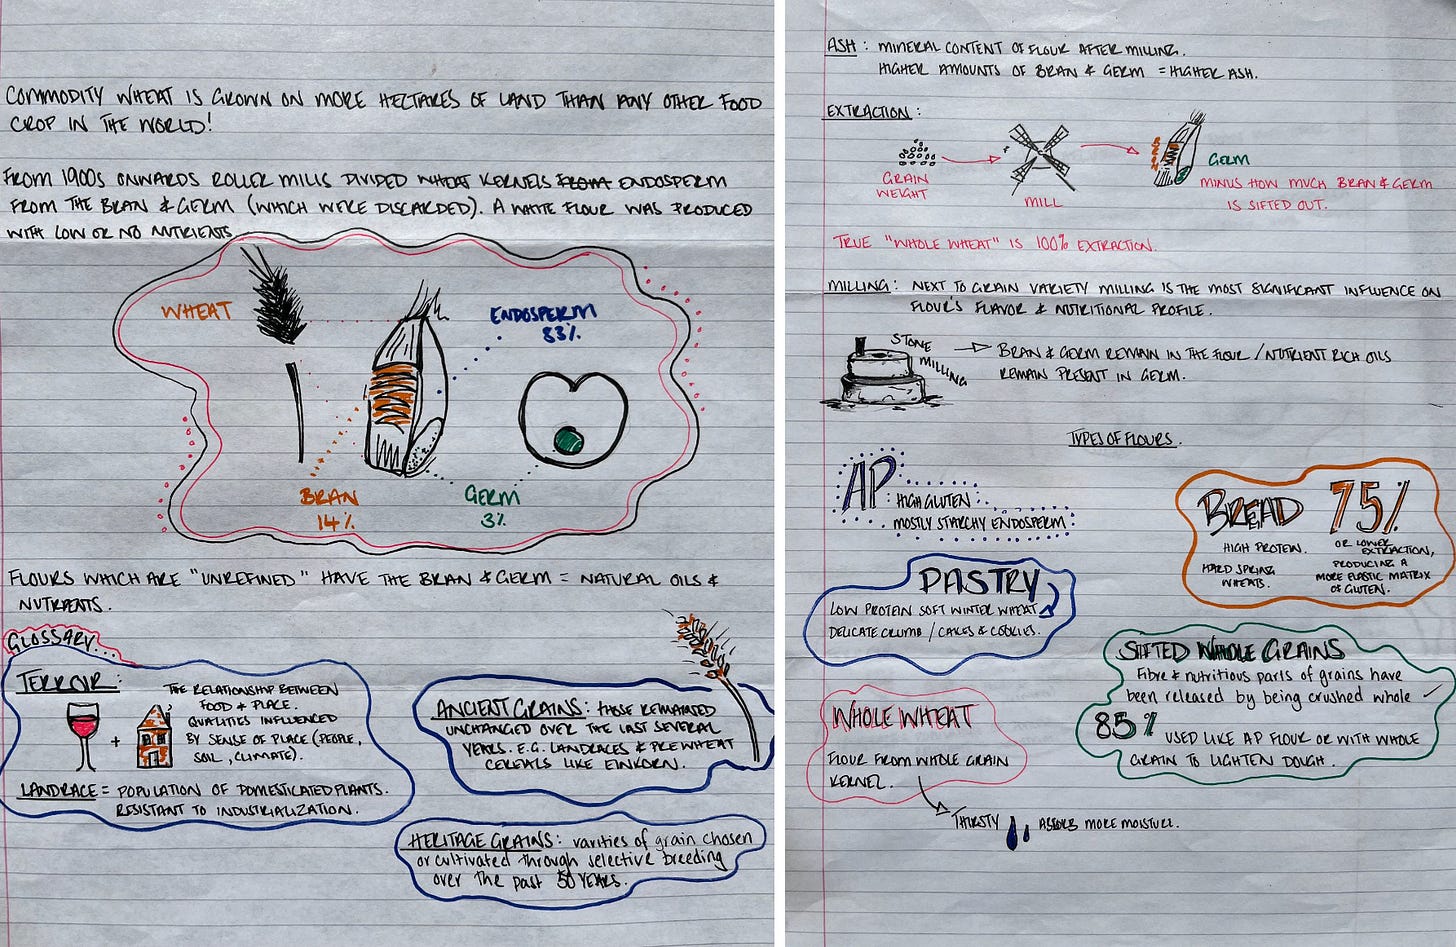 COMMODITY WHEAT IS GROWN ON MORE HECTARES OF LAND THAN ANY OTHER FOOD
CROP IN THE WORLD!
FROM 1900s ONWARDS ROLLER MILLS DIVIDED WHEAT KERNELS FROM ENDOSPERM
FROM THE BRAN & GERM (WHICH WERE DISCARDED). A WHITE FLOUR WAS PRODUCED
WITH LOW OR NO NUTRIENTS
WHEAT
ENDOSPERM
83%
BRAN
14%
GERM
3%
FLOURS WHICH ARE "UNREFINED" HAVE THE BRAN & GERM = NATURAL OILS &
NUTRIENTS.
GLOSSARY...
TERROIR:
THE RELATIONSHIP BETWEEN
FOOD & PLACE.
QUALITIES INFLUENCED
BY SENSE OF PLACE (PEOPLE,
SOIL, CLIMATE).
+
LANDRACE = POPULATION OF DOMESTICATED PLANTS.
RESISTANT TO INDUSTRIALIZATION.
ANCIENT GRAINS: THOSE REMAINED
UNCHANGED OVER THE LAST SEVERAL
YEARS. E.G. LANDRACES & PRE WHEAT
CEREALS LIKE EINKORN.
HERITAGE GRAINS: varities of grain chosen
or cultivated through selective breeding
over the past 50 YEARS.
ASH: MINERAL CONTENT OF FLOUR AFTER MILLING.
HIGHER AMOUNTS OF BRAN & GERM = HIGHER ASH.
EXTRACTION:
GRAIN
WEIGHT
MILL
GERM
MINUS HOW MUCH BRAN & GERM
IS SIFTED OUT.
TRUE "WHOLE WHEAT" IS 100% EXTRACTION.
MILLING: NEXT TO GRAIN VARIETY MILLING IS THE MOST SIGNIFICANT INFLUENCE ON
FLOUR'S FLAVOR & NUTRITIONAL PROFILE.
STONE
MILLING
BRAN & GERM REMAIN IN THE FLOUR / NUTRIENT RICH OILS
REMAIN PRESENT IN GERM.
TYPES OF FLOURS.
AP: HIGH GLUTEN
MOSTLY STARCHY ENDOSPERM
BREAD 75%
HIGH PROTEIN.
HARD SPRING
WHEATS.
OR LOWER
EXTRACTION,
PRODUCING A
MORE ELASTIC MATRIX
OF GLUTEN.
PASTRY
LOW PROTEIN SOFT WINTER WHEAT
DELICATE CRUMB / CAKES & COOKIES.
SIFTED WHOLE GRAINS
Fibre & nutritious parts of grains have
been released by being crushed whole
85% USED LIKE AP FLOUR OR WITH WHOLE
GRAIN TO LIGHTEN DOUGH.
WHOLE WHEAT
FLOUR FROM WHOLE GRAIN
KERNEL.
THIRSTY ABSORB MORE MOISTURE.